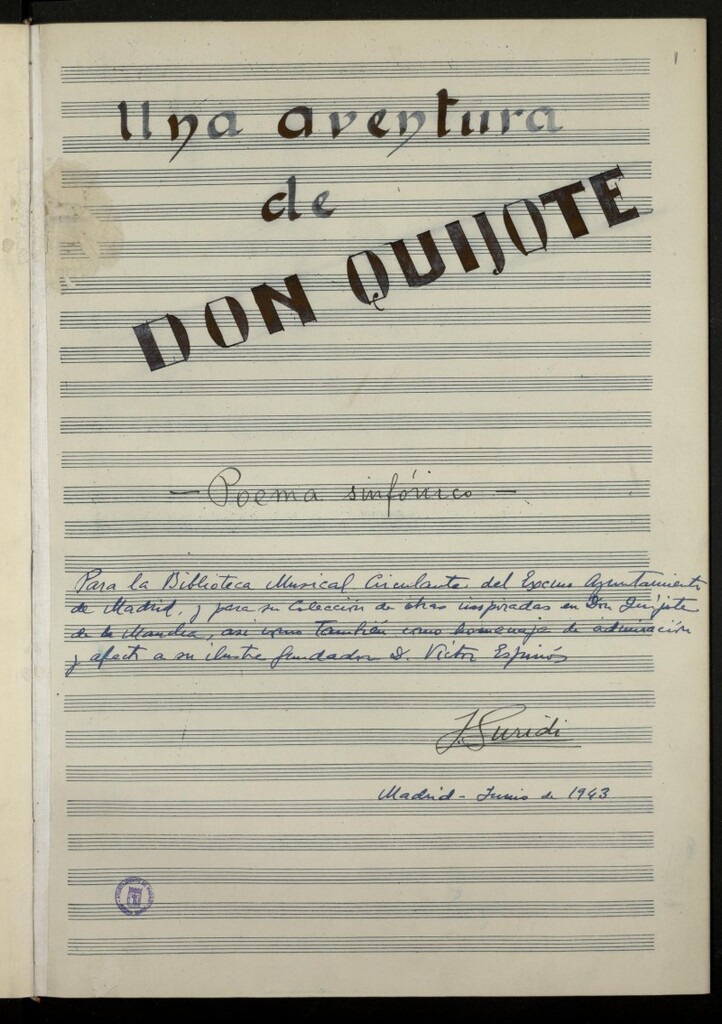 1
Una aventura
de
DON QUIJOTE
- Poema sinfónico -
Para la Biblioteca Musical Circulante del Excmo Ayuntamiento
de Madrid, y para su Colección de obras inspiradas en Don Quijote
de la Mancha, así como también como homenaje de admiración
y afecto a su ilustre fundador D. Víctor Espinós
J. Guridi
Madrid - Junio de 1943